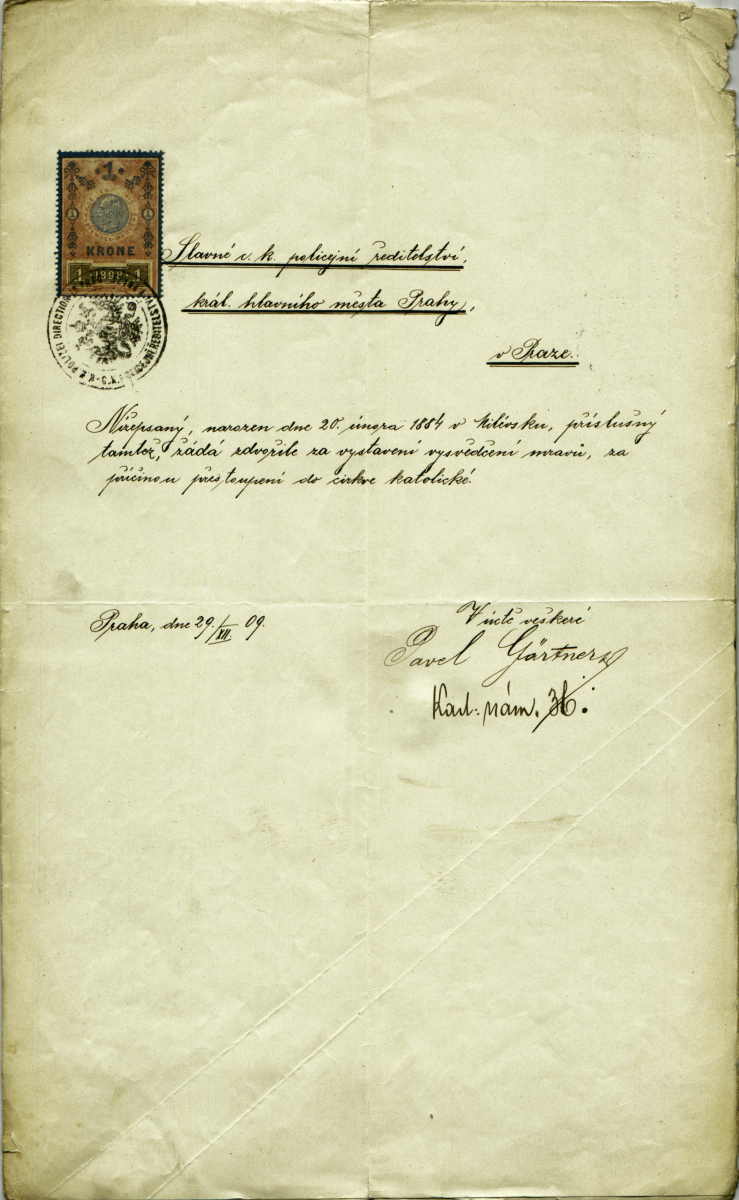 1
1 1
KRONE
1 1898 1
K.K. POLIZEI DIRECTION
Slavné c. k. policejní ředitelství,
král. hlavního města Prahy,
v Praze.
Nížepsaný, narozen dne 20. února 1884 v Milévsku, příslušný
tamtéž, žádá zdvořile za vystavení vysvědčení mravů, za
příčinou přestoupení do církve katolické.
Praha, dne 29./XII. 09.
V úctě veškeré
Pavel Gärtner
Karl. nám.